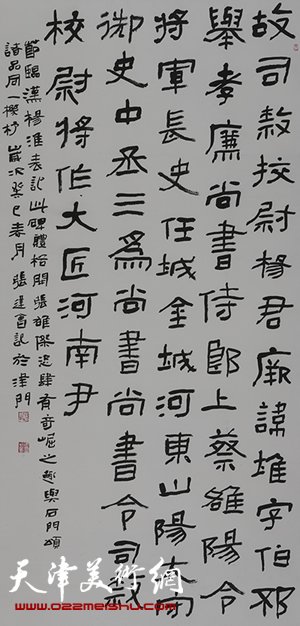 故司隸校尉楊君厥諱淮字伯邳
舉孝廉尚書侍郎上蔡雒陽令
將軍長史任城金城河東山陽太守
御史中丞三為尚書尚書令司隸
校尉將作大匠河南尹
節臨漢楊淮表記此碑體格開張雄恣肆有奇崛之趣與石門頌
諸品同一機杼歲次癸巳春月張建會記於津門
天津美術網
www.022meishu.com